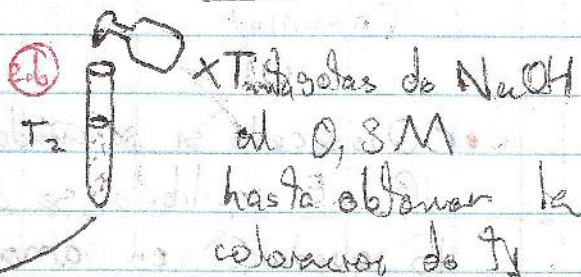 T₂
gotas de NaOH
al 0,3M
hasta obtener la
coloracion de